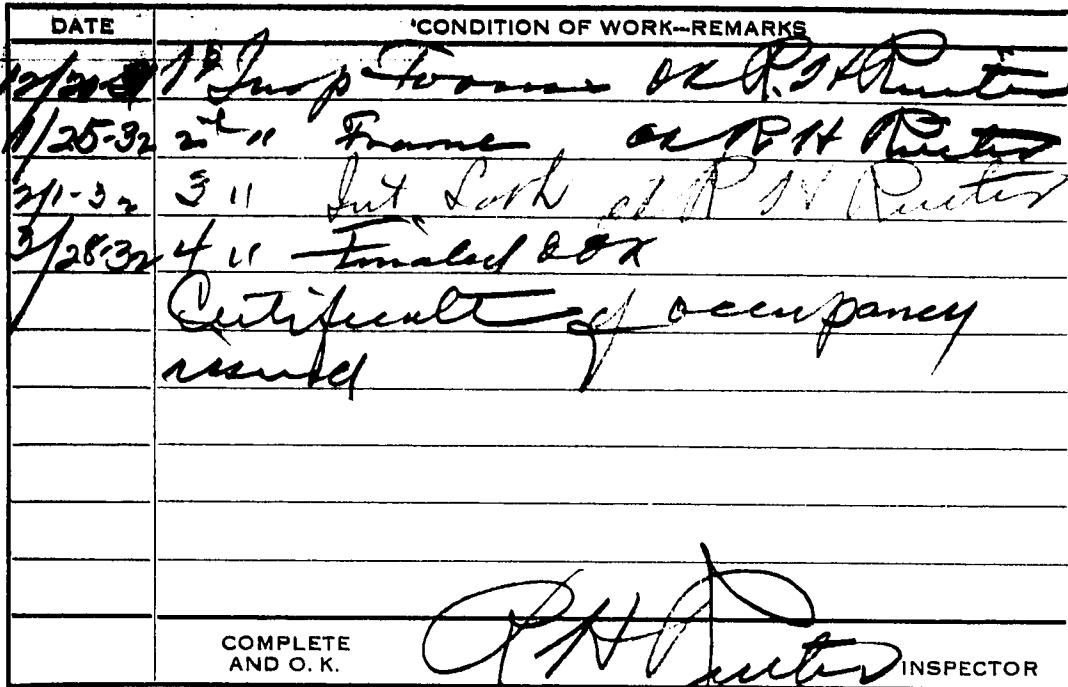 DATE CONDITION OF WORK--REMARKS
1st Insp Forms ok R. H Rueter
1/25-32 2nd " Frame ok R H Rueter
2/1-32 3 " Int Lath ok R H Rueter
3/28-32 4 " Finaled OK
Certificate of occupancy
issued
COMPLETE
AND O. K.
R H Rueter INSPECTOR